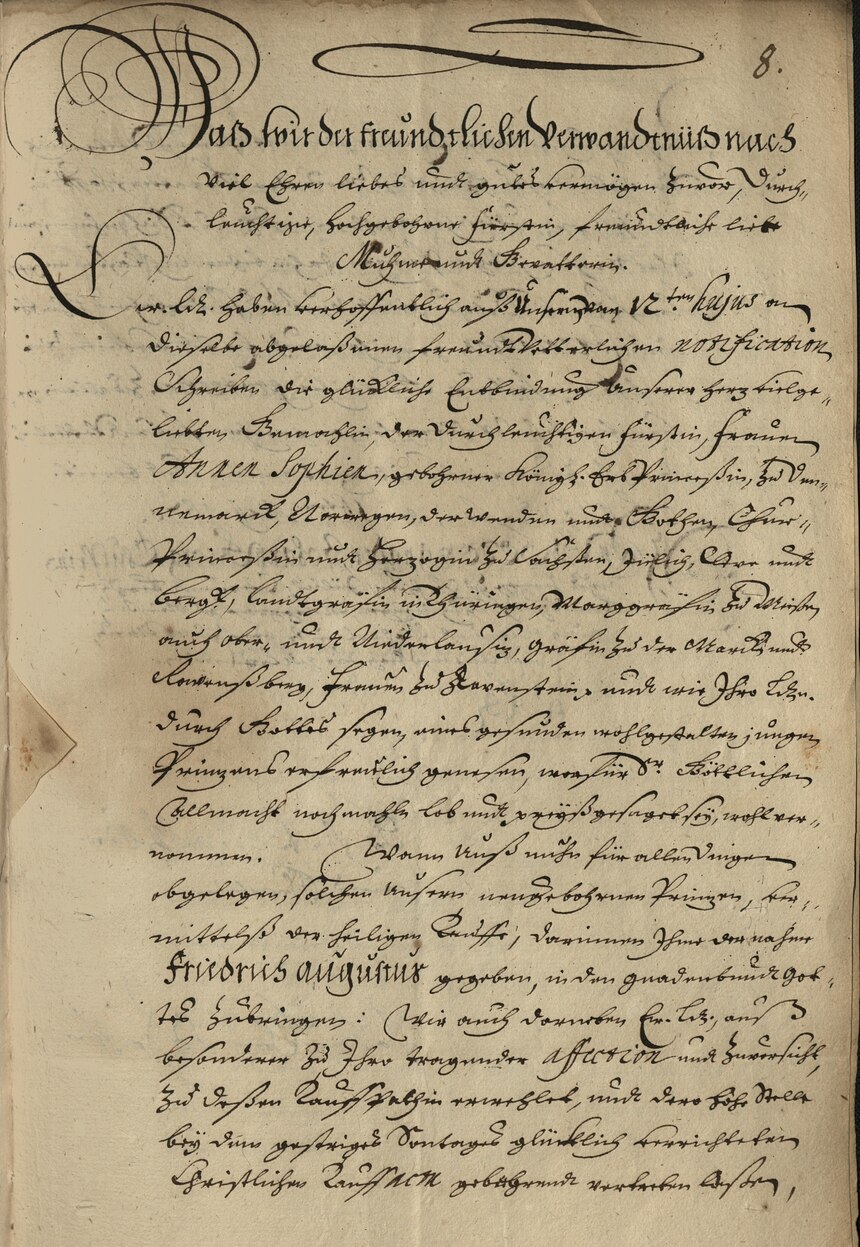 8.
Waß wir der freundtlichen Verwandtnüß nach
viel Ehren liebes undt gutes vermögen zuvor, Durch-
leuchtige, hochgebohrne Fürstin, freundtliche liebe
Muhme undt Gevatterin.
Ew. Ld. haben verhoffentlich auß Unserm vom 12ten hujus an
dieselbe abgelaßenen freundtvetterlichen notification
Schreiben die glückliche Entbindung Unserer hertzvielge-
liebten Gemahlin, der Durchleuchtigen Fürstin, Frauen
Annen Sophien, gebohrner Königl. Erb Princeßin, zu Den-
nemarck, Norwegen, der Wenden undt Gothen, Chur-
Princeßin undt Herzogin zu Sachßen, Jülich, Cleve undt
Bergk, Landtgräfin in Thüringen, Marggräfin zu Meißen
auch Ober- undt Niederlausiz, Gräfin zu der Marck undt
Ravenßberg, Frauen zu Ravenstein, undt wie Ihro Ldn.
durch Gottes segen, eines gesunden wohlgestalten jungen
Prinzens erfreulich genesen, worfür Sr. Göttlichen
Allmacht nochmahln lob undt preyß gesaget sey, wohl ver-
nommen. Wann Unß nuhn für allen Dingen
obgelegen, solchen Unsern neugebohrnen Prinzen, ver-
mittelß der heiligen Tauffe, darinnen Ihme der nahme
Friedrich Augustus gegeben, in den gnadenbundt Got-
tes zubringen: Wir auch darneben Ew. Ld., auß
besonderer zu Ihro tragender affection undt zuversicht,
zu deßen Tauffpathin erwehlet, undt dero hohe Stelle
bey dem gestriges Sontages glücklich verrichteten
Christlichen Tauff acta gebührendt vertreten laßen,